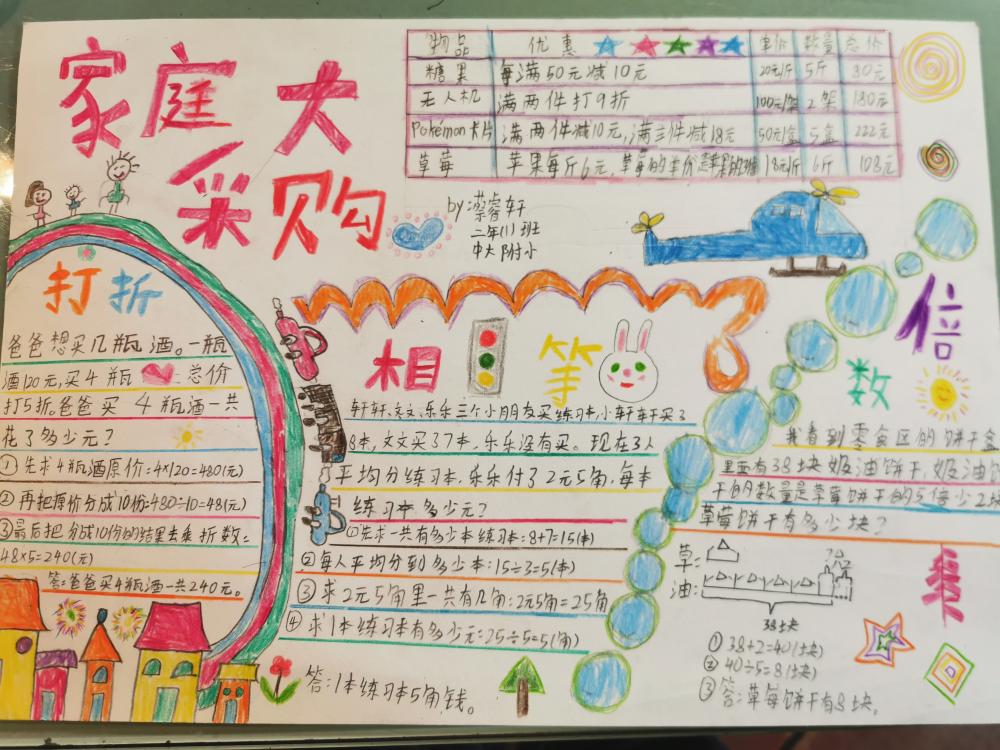 家庭大
采购
物品 优惠 单价 数量 总价
糖果 每满50元减10元 20元/斤 5斤 80元
无人机 满两件打9折 100元/架 2架 180元
Pokémon卡片 满两件减10元,满三件减18元 50元/盒 5盒 222元
草莓 苹果每斤6元,草莓的单价是苹果的3倍 18元/斤 6斤 108元
by:蔡睿轩
二年(1)班
中大附小
打折
爸爸想买几瓶酒。一瓶
酒120元,买4瓶 总价
打5折。爸爸买4瓶酒一共
花了多少元?
①先求4瓶酒原价:4×120=480(元)
②再把原价分成10份:480÷10=48(元)
③最后把分成10份的结果去乘折数:
48×5=240(元)
答:爸爸买4瓶酒一共240元。
相等
轩轩、文文、乐乐三个小朋友买练习本,小轩轩买了
8本,文文买了7本,乐乐没有买。现在3人
平均分练习本,乐乐付了2元5角,每本
练习本多少元?
①先求一共有多少本练习本:8+7=15(本)
②每人平均分到多少本:15÷3=5(本)
③求2元5角里一共有几角:2元5角=25角
④求1本练习本有多少元:25÷5=5(角)
答:1本练习本5角钱。
倍
数
我看到零食区的饼干盒
里面有38块奶油饼干,奶油饼
干的数量是草莓饼干的5倍少2块
草莓饼干有多少块?
草:
油:
38块
①38+2=40(块)
②40÷5=8(块)
③答:草莓饼干有8块。